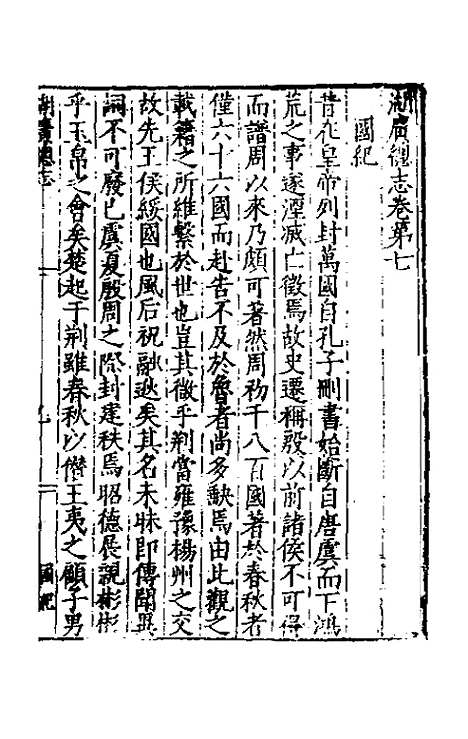 湖廣總志卷第七
國紀
昔在皇帝列封萬國自孔子刪書始斷自唐虞而下鴻
荒之事遂湮滅亡徵焉故史遷稱殷以前諸侯不可得
而譜周以來乃頗可著然周初千八百國著於春秋者
僅六十六國而赴告不及於魯者尚多缺焉由此觀之
載籍之所維繫於世也豈其微乎荊當雍豫楊州之交
故先王侯綏國也風后祝融逖矣其名未昧即傳聞異
詞不可廢已虞夏殷周之際封建秩焉昭德展親彬彬
乎玉帛之會矣楚起于荊雖春秋以僭王夷之顧子男
湖廣總志
國紀